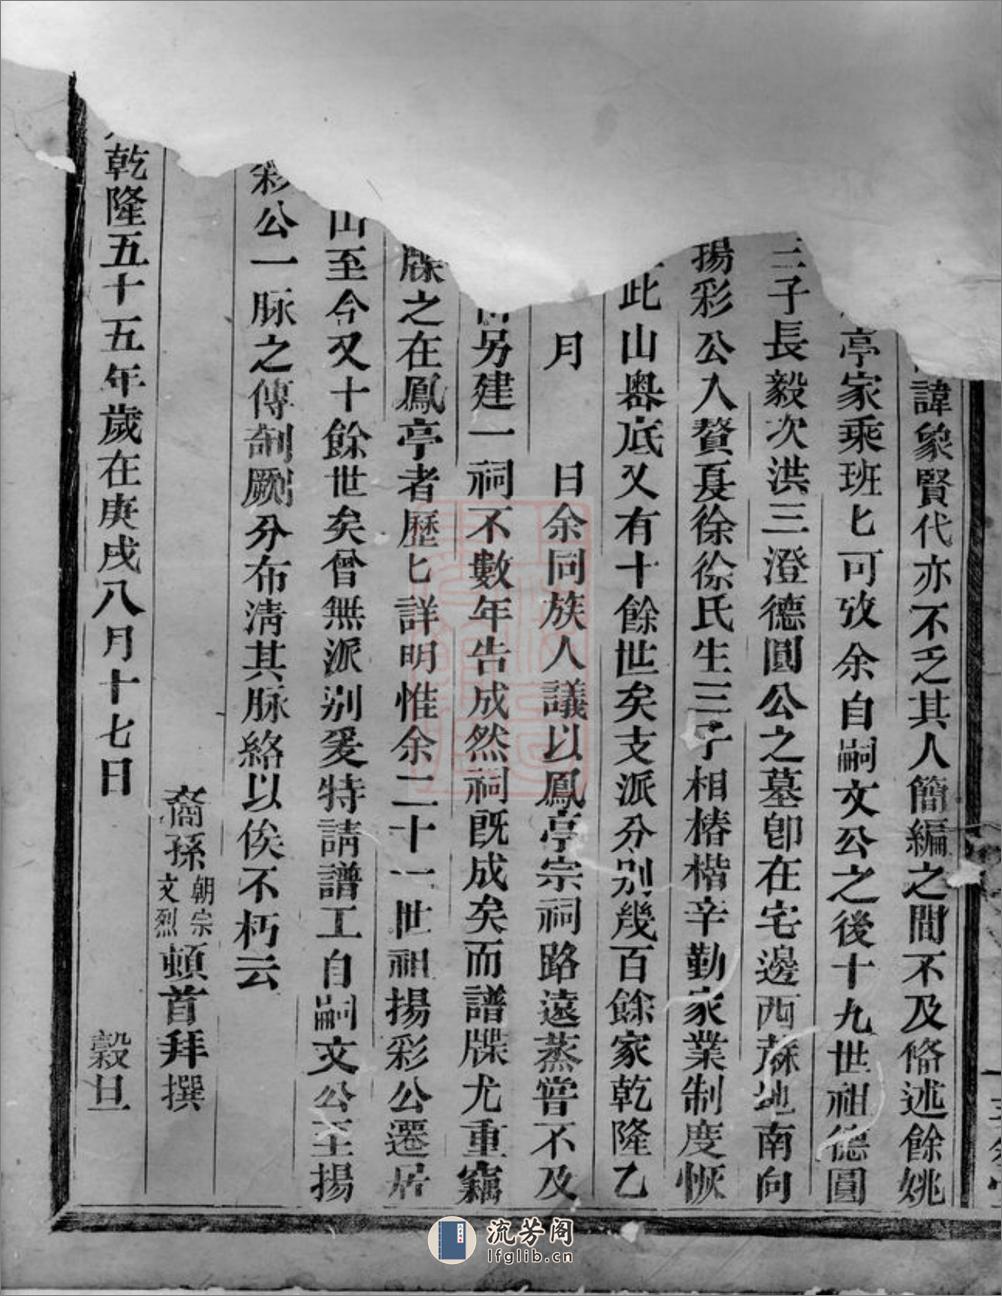 諱象賢代亦不乏其人簡編之間不及俻述餘姚
亭家乘班匕可攷余自嗣文公之後十九世祖德圓
三子長毅次洪三澄德圓公之墓卽在宅邊西蔴地南向
揚彩公入贅夏徐徐氏生三子相椿楷辛勤家業制度恢
此山嶴底又有十餘世矣支派分别幾百餘家乾隆乙
月　日余同族人議以鳳亭宗祠路遠蒸嘗不及
另建一祠不數年告成然祠旣成矣而譜牒尤重竊
牒之在鳳亭者歷匕詳明惟余二十一世祖揚彩公遷居
山至今又十餘世矣曾無派别爰特請譜工自嗣文公至揚
彩公一脉之傳劊劂分布淸其脉絡以俟不朽云
裔孫朝宗文烈頓首拜撰
乾隆五十五年歲在庚戌八月十七日　穀旦
流芳阁
lfglib.cn